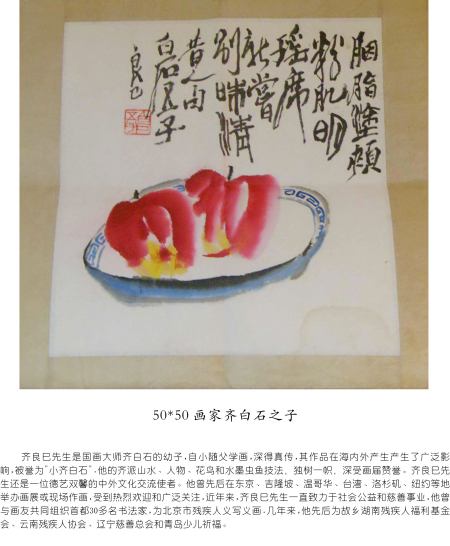 胭脂塗頰
粉肌明
瑶席
嘗
别味清
白石五子
良已
50*50 画家齐白石之子
齐良巳先生是国画大师齐白石的幼子，自小随父学画，深得真传，其作品在海内外产生产生了广泛影
响，被誉为"小齐白石"，他的齐派山水、人物、花鸟和水墨虫鱼技法，独树一帜，深受画届赞誉。齐良巳先
生还是一位德艺双馨的中外文化交流使者。他曾先后在东京、吉隆坡、温哥华、台湾、洛杉矶、纽约等地
举办画展或现场作画，受到热烈欢迎和广泛关注，近年来，齐良巳先生一直致力于社会公益和慈善事业，他曾
与画友共同组织首都30多名书法家，为北京市残疾人义写义画，几年来，他先后为故乡湖南残疾人福利基金
会、云南残疾人协会、辽宁慈善总会和青岛少儿祈福。